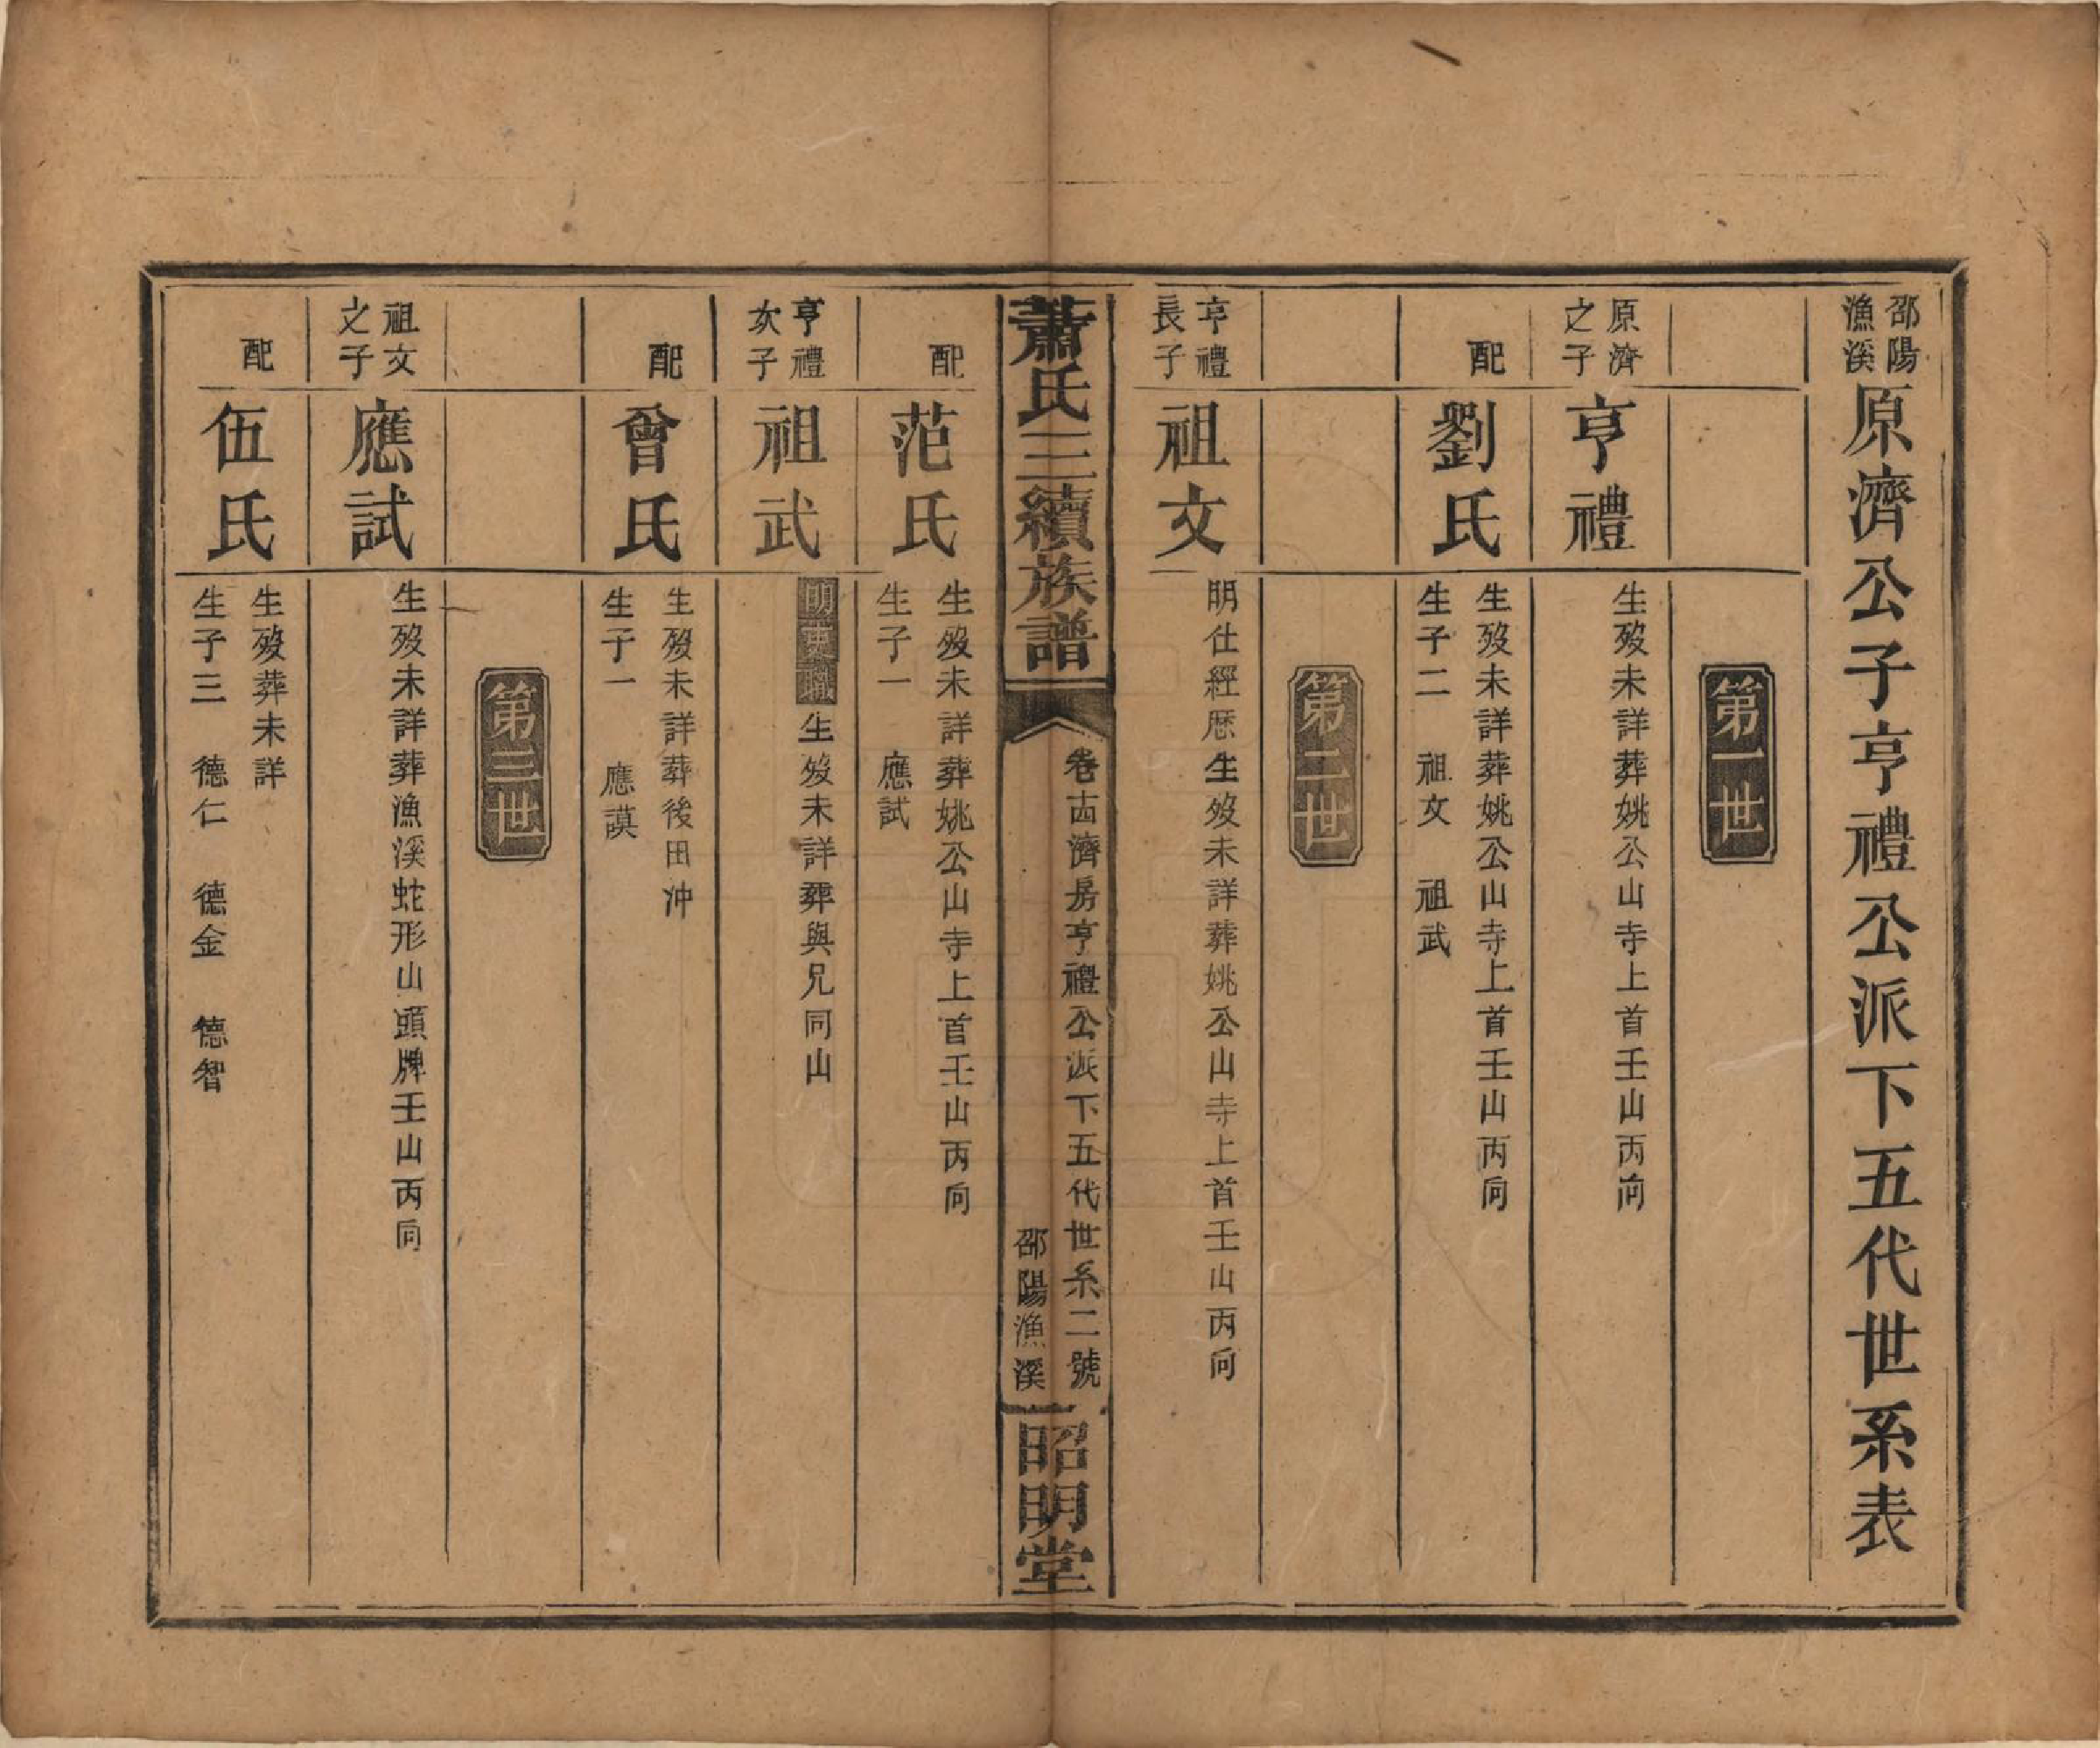 邵陽
漁溪
原濟公子亨禮公派下五代世系表
第一世
原濟
之子
亨禮
生歿未詳葬姚公山寺上首壬山丙向
配
劉氏
生歿未詳葬姚公山寺上首壬山丙向
生子二 祖文 祖武
第二世
亨禮
長子
祖文
明仕經歷生歿未詳葬姚公山寺上首壬山丙向
蕭氏三續族譜
卷十四濟房亨禮公派下五代世系二號
邵陽漁溪
昭明堂
配
范氏
生歿未詳葬姚公山寺上首壬山丙向
生子一 應試
亨禮
次子
祖武
明 職 生歿未詳葬與兄同山
配
曾氏
生歿未詳葬後田沖
生子一 應謨
第三世
祖文
之子
應試
生歿未詳葬漁溪蛇形山頭牌壬山丙向
配
伍氏
生歿葬未詳
生子三 德仁 德金 德智